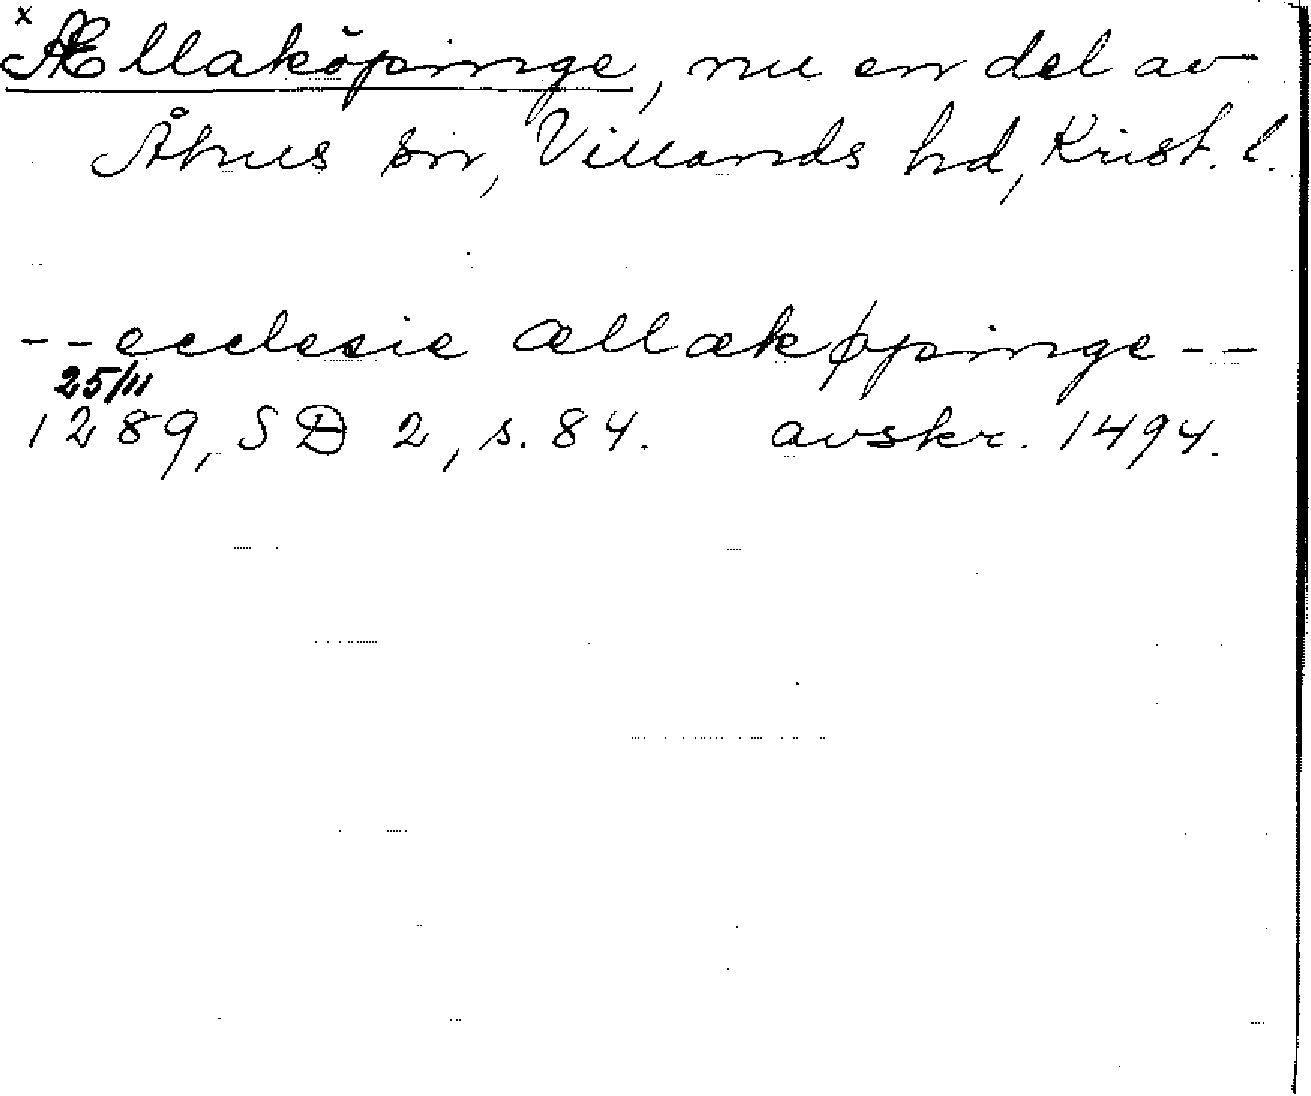 x
Ællaköpinge, nu en del av
Åhus sn, Villands hd, Krist. l.
-- ecclesie ællækøpinge --
25/11
1289, SD 2, s. 84. avskr. 1494.